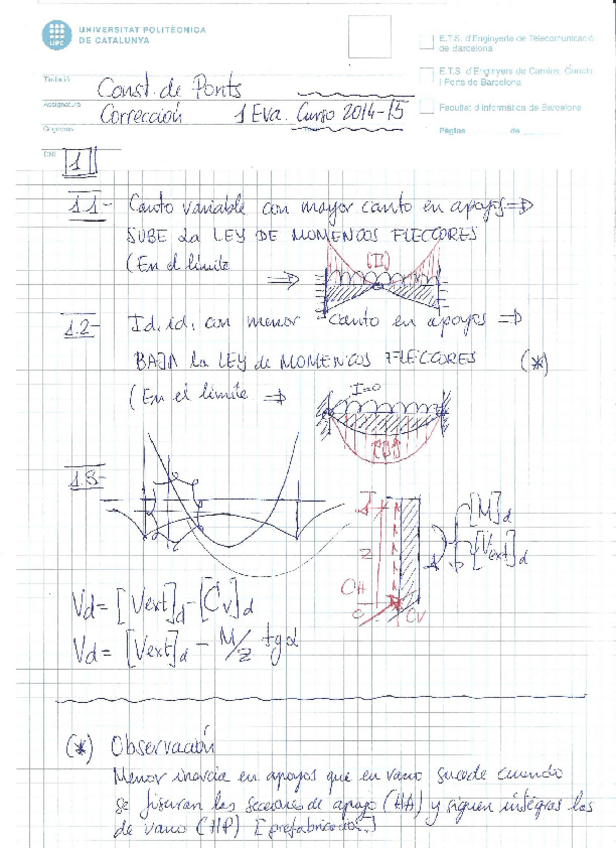 UNIVERSITAT POLITÈCNICA
DE CATALUNYA
UPC
E.T.S. d'Enginyeria de Telecomunicació
de Barcelona
E.T.S. d'Enginyers de Camins, Canals
i Ports de Barcelona
Facultat d'Informàtica de Barcelona
Pàgina de
Titulació
Const. de Ponts
Assignatura
Corrección 1 Eva. Curso 2014-15
Cognoms
DNI
1
1.1- Canto variable con mayor canto en apoyos =>
SUBE La LEY DE MOMENTOS FLECTORES
(En el límite =>
(II)
1.2- Id. id. con menor canto en apoyos =>
BAJA la LEY de MOMENTOS FLECTORES (*)
(En el límite =>
I=0
1.3-
[M]d
[Vext]d
z
CH
CV
Vd = [Vext]d - [Cv]d
Vd = [Vext]d - M/z tg α
(*) Observación
Menor inercia en apoyos que en vano sucede cuando
se fisuran las secciones de apoyo (HA) y siguen íntegras las
de vano (HP) [prefabricados.]